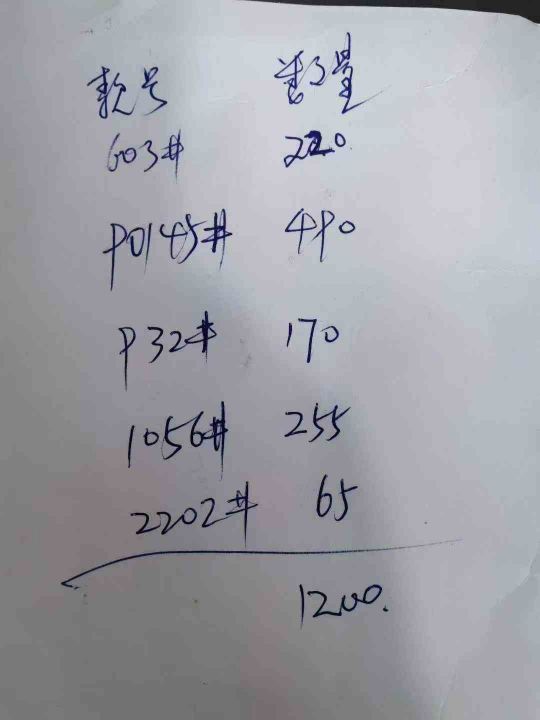 款号 数量
603# 220
P0145# 490
P32# 170
1056# 255
2202# 65
1200.